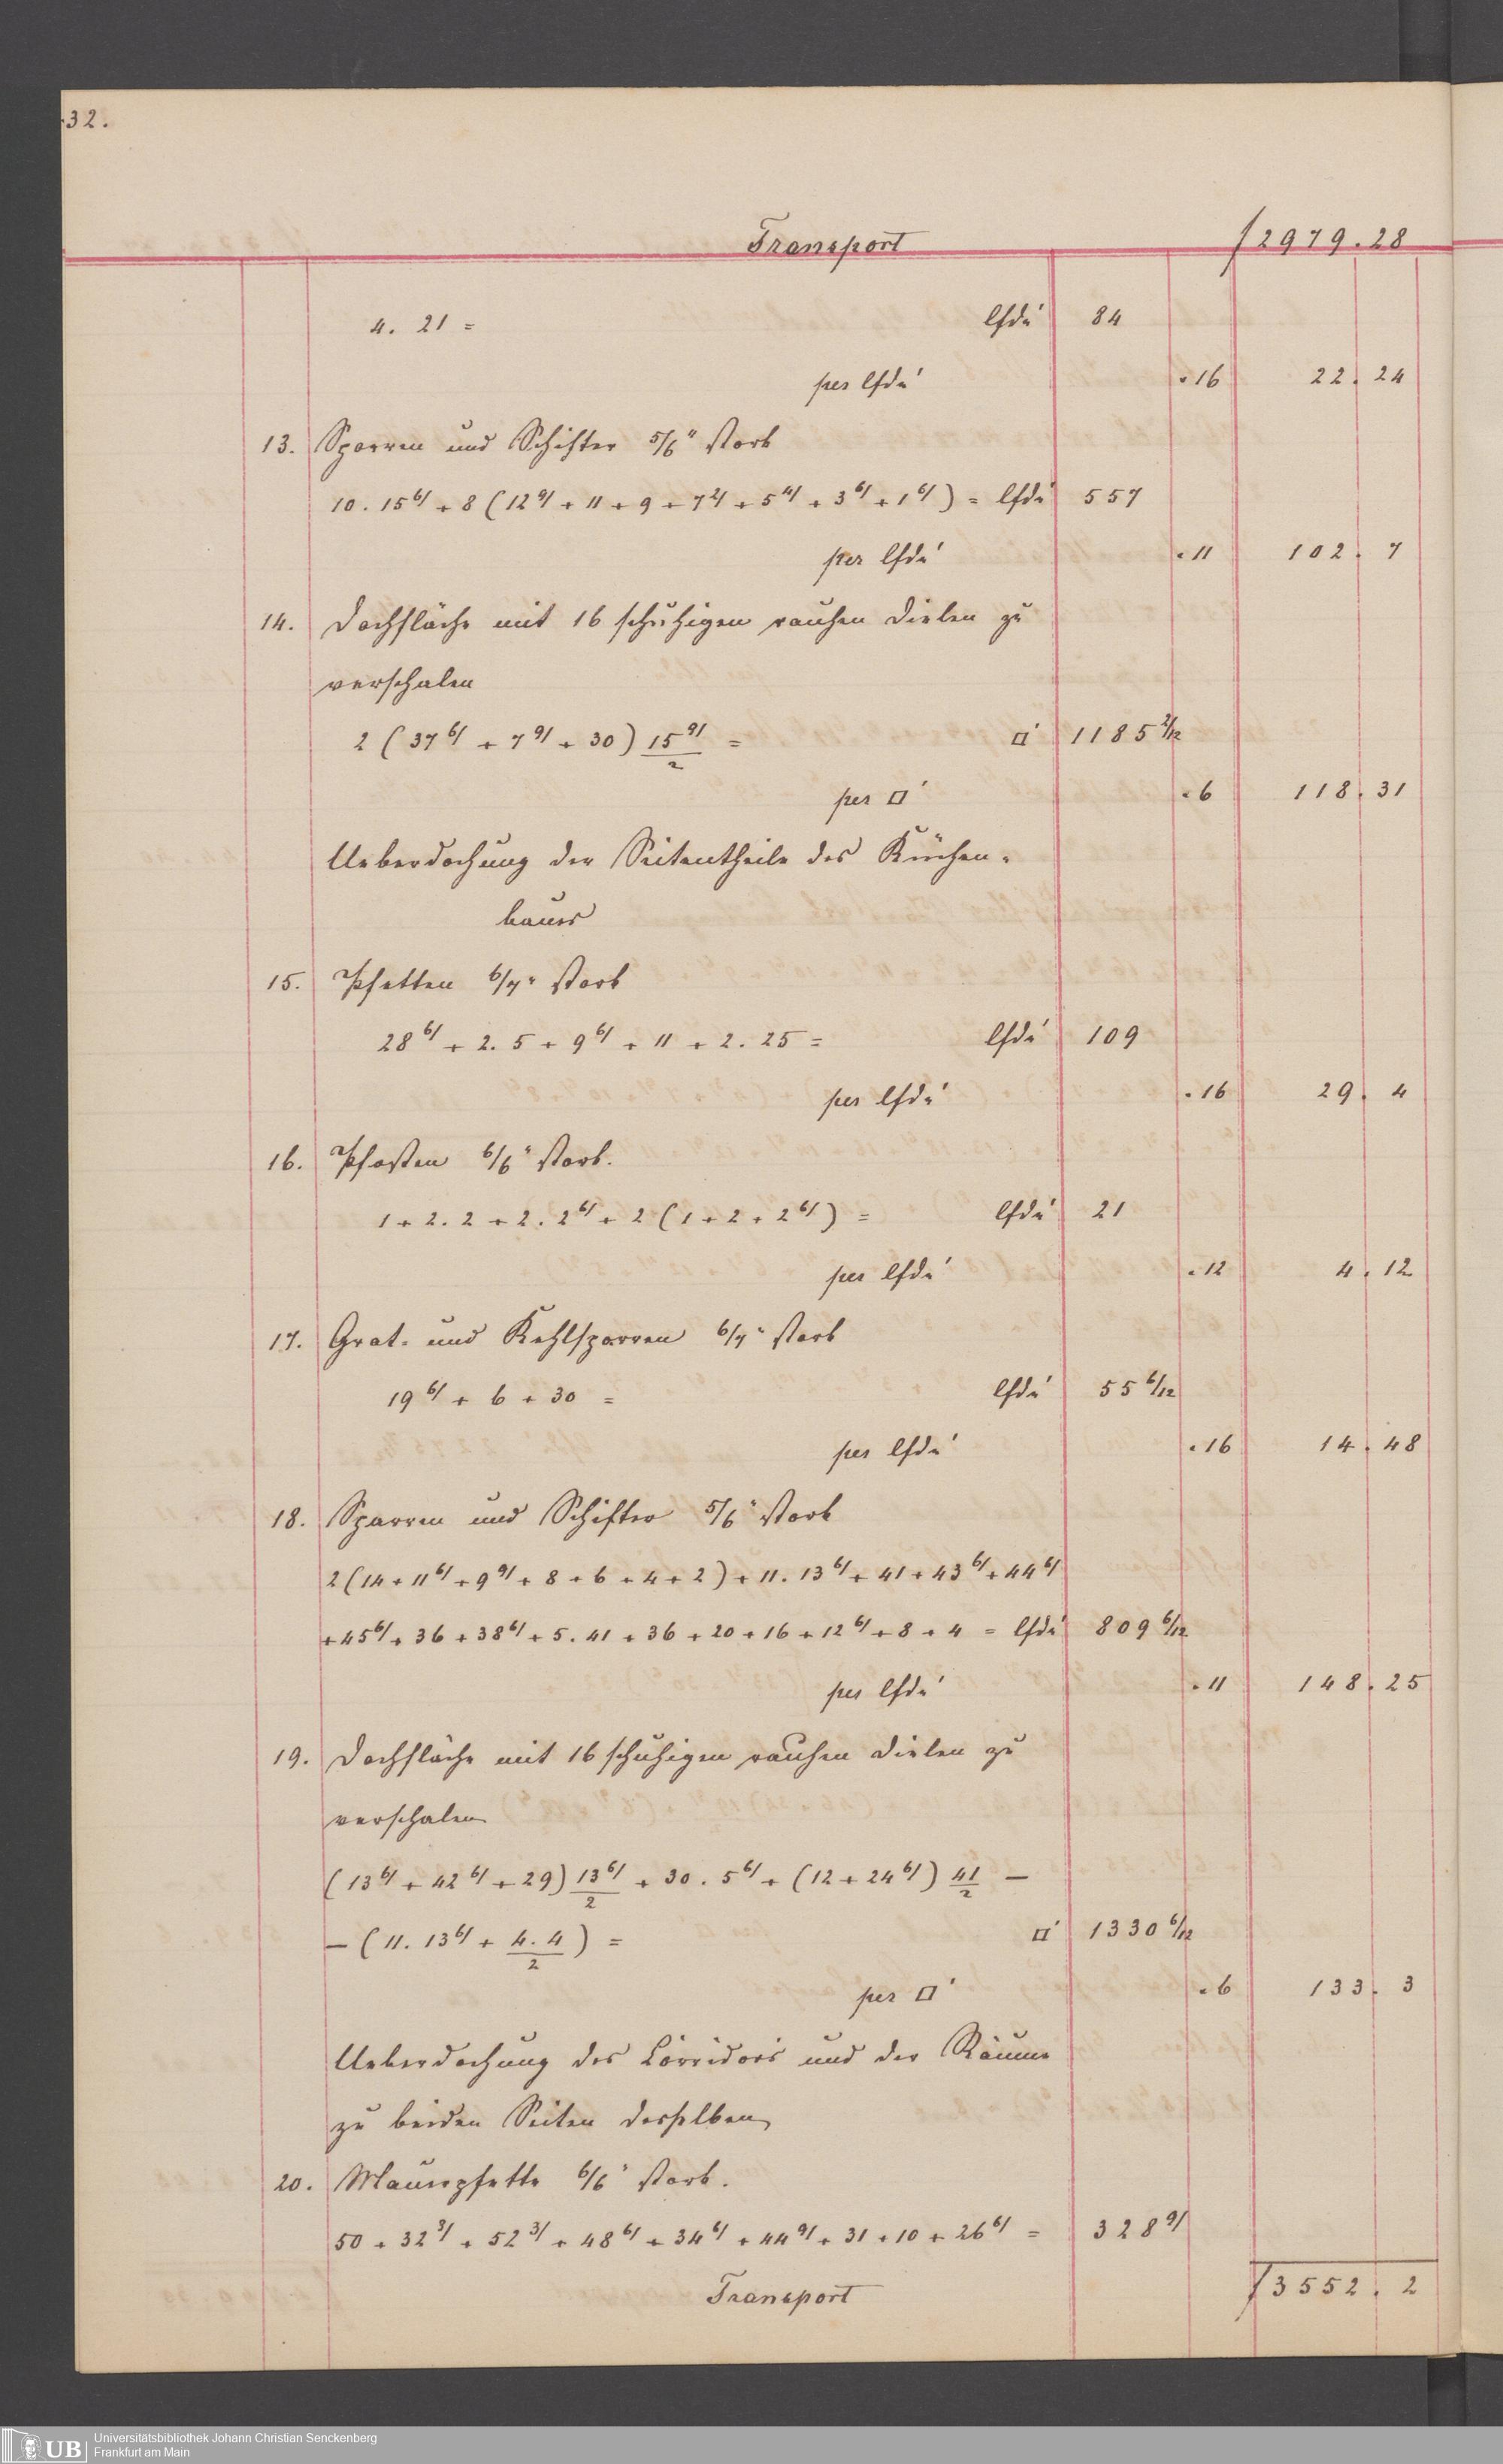 32.
Transport f 2979.28
4. 21 = lfde' 84
per lfde' .16 22. 24
13. Sparren und Schifter 5/6" stark
10. 15 6/ + 8 (12 9/ + 11 + 9 + 7 2/ + 5 4/ + 3 6/ + 1 6/) = lfde' 557
per lfde' .11 102. 7
14. Dachfläche mit 16 schuhigen rauhen Dielen zu
verschalen
2 (37 6/ + 7 9/ + 30) 15 9/ / 2 = □' 1185 2/12
per □' .6 118. 31
Ueberdachung der Seitentheile des Küchen-
baues
15. Pfetten 6/7" stark
28 6/ + 2. 5 + 9 6/ + 11 + 2. 25 = lfde' 109
per lfde' .16 29. 4
16. Pfosten 6/6" stark.
1 + 2. 2 + 2. 2 6/ + 2 (1 + 2 + 2 6/) = lfde' 21
per lfde' .12 4. 12
17. Grat- und Kehlsparren 6/7" stark
19 6/ + 6 + 30 = lfde' 55 6/12
per lfde' .16 14. 48
18. Sparren und Schifter 5/6" stark
2 (14 + 11 6/ + 9 9/ + 8 + 6 + 4 + 2) + 11. 13 6/ + 41 + 43 6/ + 44 6/
+ 45 6/ + 36 + 38 6/ + 5. 41 + 36 + 20 + 16 + 12 6/ + 8 + 4 = lfde' 809 6/12
per lfde' .11 148. 25
19. Dachfläche mit 16 schuhigen rauhen Dielen zu
verschalen
(13 6/ + 42 6/ + 29) 13 6/ / 2 + 30. 5 6/ + (12 + 24 6/) 41/2 —
— (11. 13 6/ + 4. 4 / 2) = □' 1330 6/12
per □' .6 133. 3
Ueberdachung des Corridors und der Räume
zu beiden Seiten desselben
20. Mauerpfette 6/6" stark.
50 + 32 3/ + 52 3/ + 48 6/ + 34 6/ + 44 9/ + 31 + 10 + 26 6/ = 328 9/
Transport f 3552. 2
UB Universitätsbibliothek Johann Christian Senckenberg
Frankfurt am Main